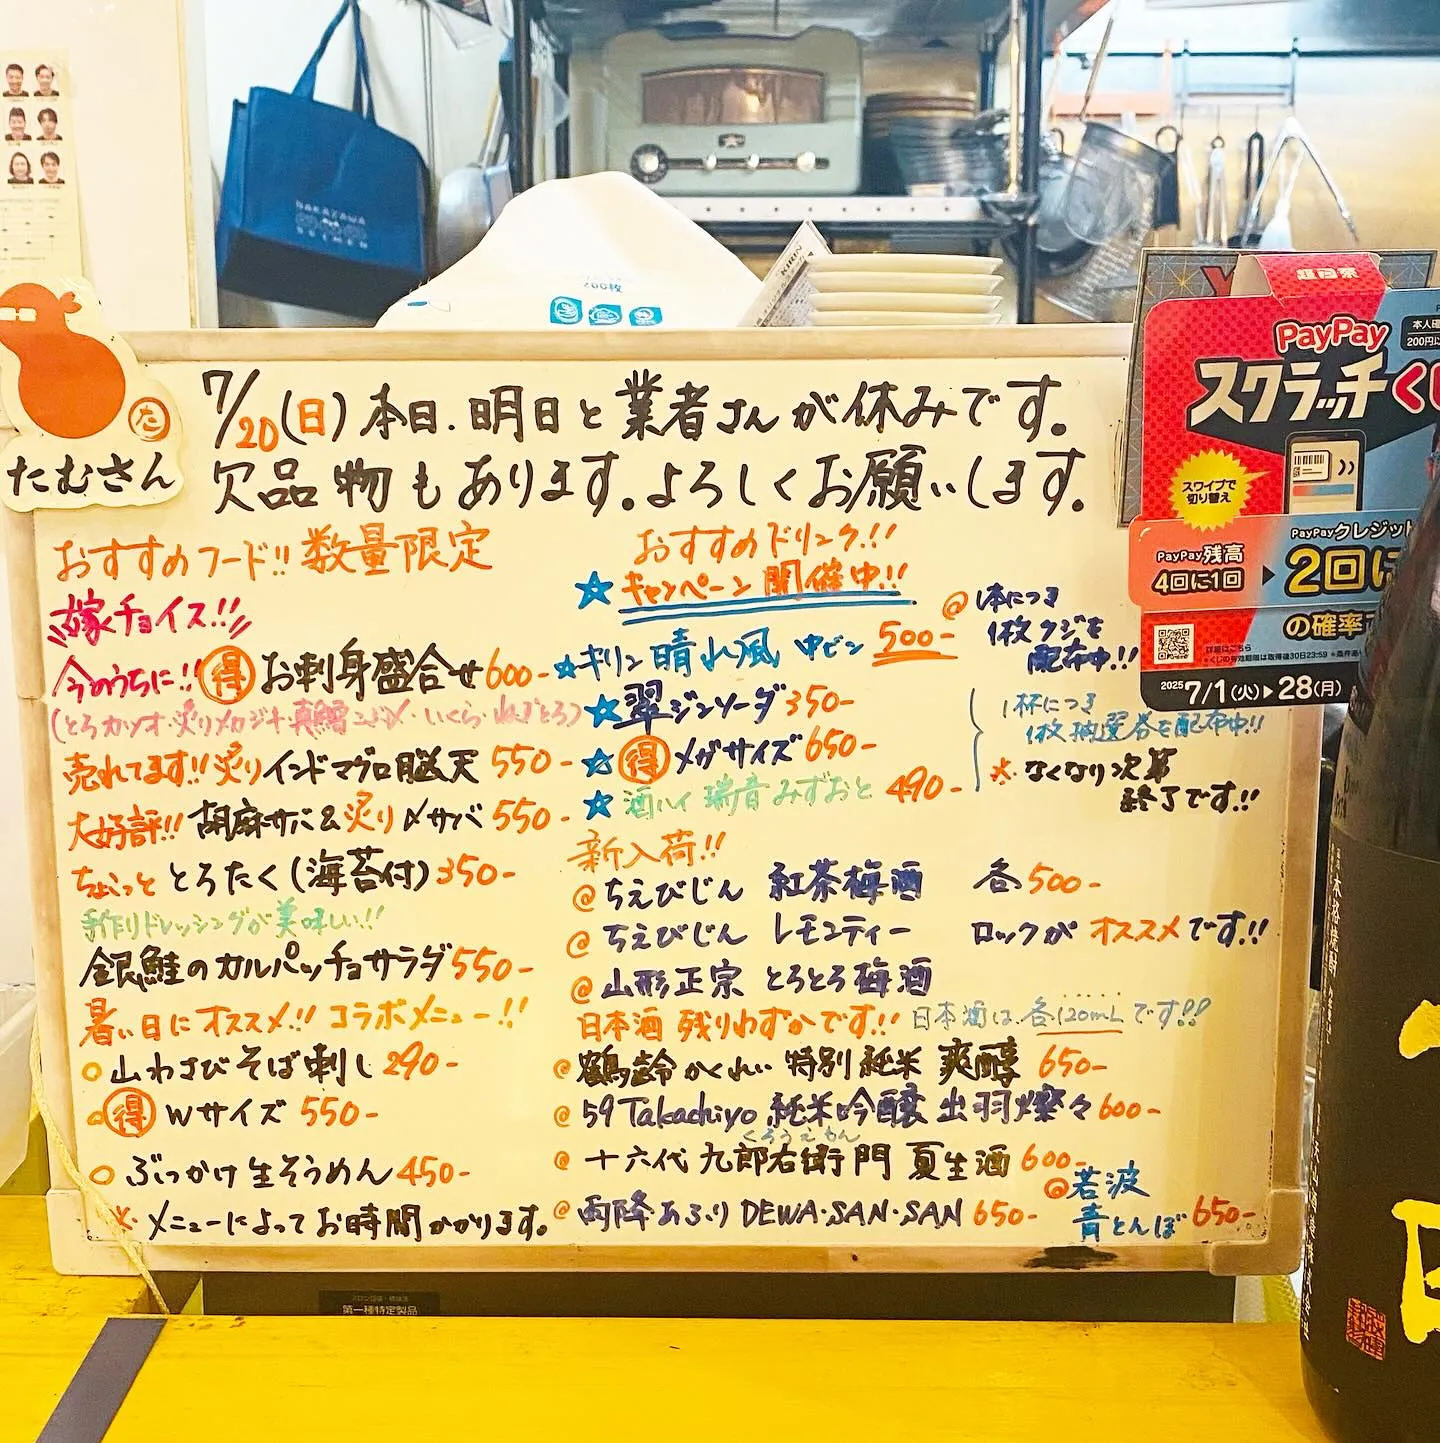 NAKAZAWA
SEIMEN
200枚
KIRIN
た
たむさん
7/20(日)本日.明日と業者さんが休みです。
欠品物もあります。よろしくお願いします。
おすすめフード!! 数量限定
嫁チョイス!!
今のうちに!! 得 お刺身盛合せ 600-
(とろカツオ・炙りメカジキ・真鯛コブ〆・いくら・ねぎとろ)
売れてます!! 炙りインドマグロ脳天 550-
大好評!! 胡麻サバ&炙り〆サバ 550-
ちょこっと とろたく(海苔付) 350-
手作りドレッシングが美味しい!!
銀鮭のカルパッチョサラダ 550-
暑い日にオススメ!! コラボメニュー!!
○ 山わさびそば刺し 290-
得 Wサイズ 550-
○ ぶっかけ生そうめん 450-
※メニューによってお時間かかります。
おすすめドリンク!!
☆ キャンペーン開催中!!
☆ キリン晴れ風 中ビン 500-
@ 1本につき
1枚クジを
配布中!!!
☆ 翠ジンソーダ 350-
☆ 得 メガサイズ 650-
☆ 酒ハイ 瑞音 みずおと 490-
1杯につき
1枚抽選券を配布中!!
※なくなり次第
終了です!!
新入荷!!
@ ちえびじん 紅茶梅酒 各500-
@ ちえびじん レモンティー ロックがオススメです!!
@ 山形正宗 とろとろ梅酒
日本酒 残りわずかです!! 日本酒は、各120mLです!!
@ 鶴齢 かくれい 特別純米 爽醇 650-
@ 59Takachiyo 純米吟醸 出羽燦々 600-
くろうえもん
@ 十六代 九郎右衛門 夏生酒 600-
@ 雨降 あふり DEWA・SAN・SAN 650-
@ 若波
青とんぼ 650-
超回祭
PayPay
スクラッチく
本人確
スワイプで
切り替え
PayPay残高
4回に1回
PayPayクレジット
2回に
の確率
詳細はこちら
2025 7/1(火)▶28(月)
本格焼酎
第一種特定製品